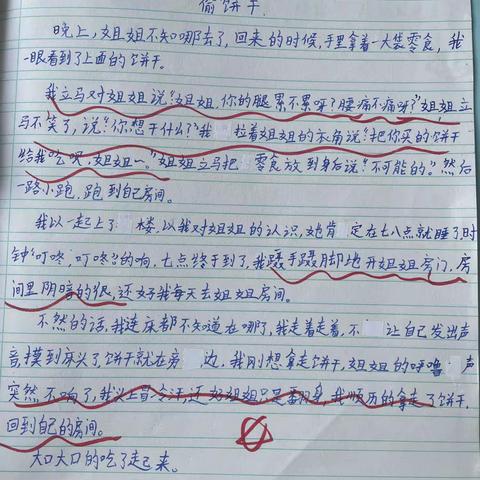 偷饼干
晚上,姐姐不知哪去了,回来的时候,手里拿着一大袋零食,我
一眼看到了上面的饼干。
我立马对姐姐说:"姐姐,你的腿累不累呀?腰痛不痛呀?"姐姐立
马不笑了,说:"你想干什么?"我拉着姐姐的衣角说:"把你买的饼干
给我吃呗,姐姐~。"姐姐立马把零食放到身后说:"不可能的。"然后
一路小跑,跑到自己房间。
我以一起上了楼,以我对姐姐的认识,她肯定在七八点就睡了,时
钟"叮咚,叮咚"的响,七点终于到了,我蹑手蹑脚地开姐姐房门,房
间里阴暗的很,还好我每天去姐姐房间。
不然的话,我连床都不知道在哪了,我走着走着,不让自己发出声
音,摸到床头了饼干就在旁边,我刚想拿走饼干,姐姐的呼噜声
突然不响了,我头上冒冷汗,还好姐姐只是翻身,我顺历的拿走了饼干,
回到自己的房间。
大口大口的吃了起来。